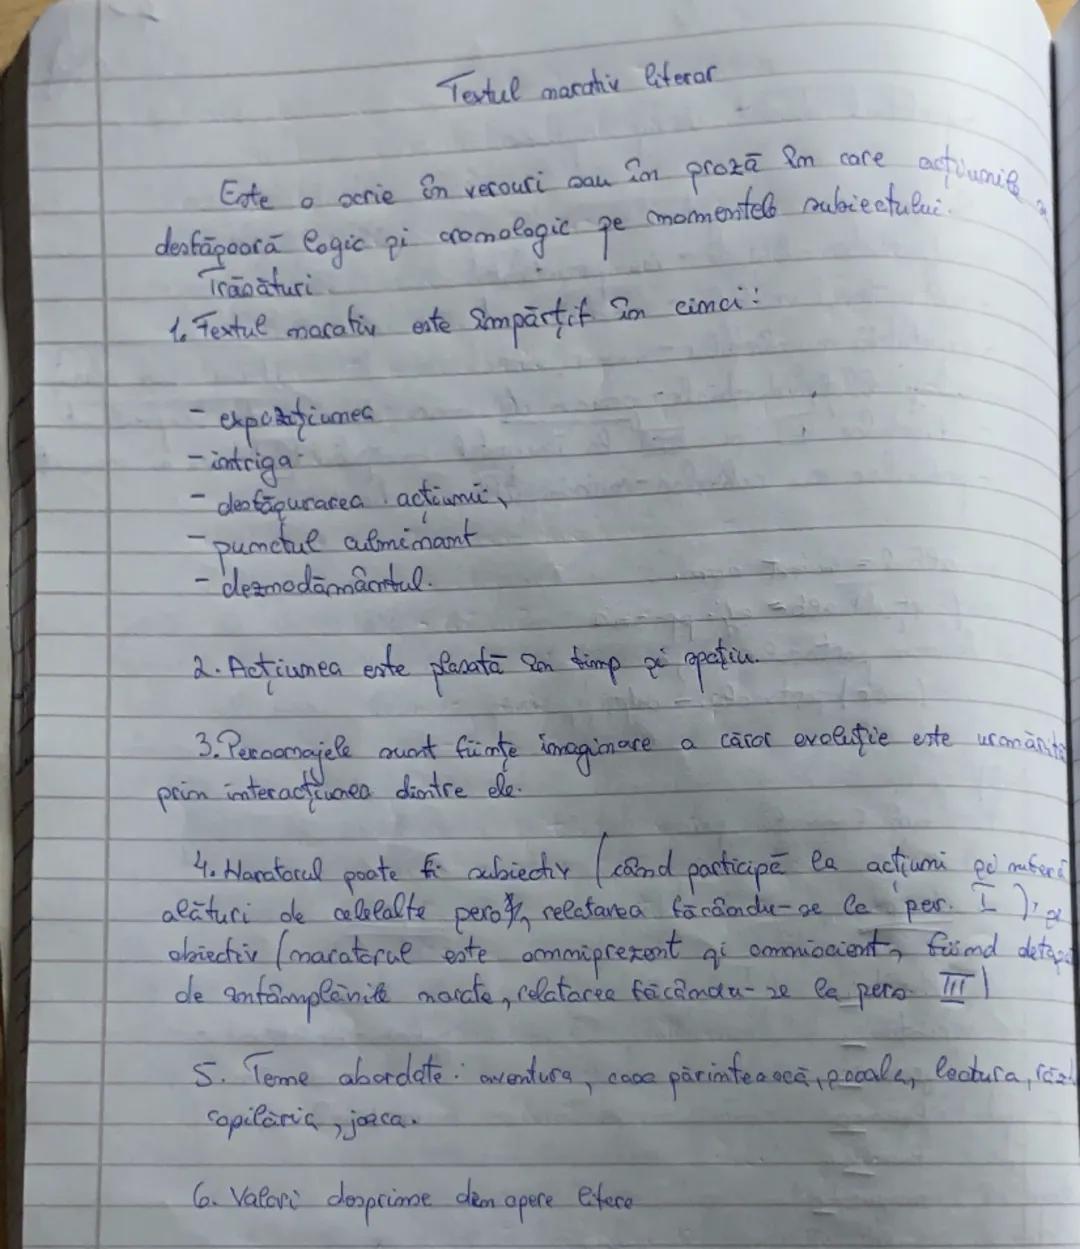 Textul narativ literar
Este o scrie în versuri sau în proză în care acțiunile
desfășoară logic și cronologic pe momentele subiectului.
Trăsături
1. Textul narativ este împărțit în cinci:
- expozițiunea
- intriga
- desfășurarea acțiunii,
- punctul culminant
- deznodământul.
2. Acțiunea este plasată în timp și spațiu.
3. Personajele sunt ființe imaginare a căror evoluție este urmărită
prin interacțiunea dintre ele.
4. Naratorul poate fi subiectiv (când participă la acțiuni
alături de celelalte pers, relatarea făcându-se la pers. I),
obiectiv (naratorul este omniprezent și omniscient, fiind
de întâmplările narate, relatarea făcându-se la pers. III)
5. Teme abordate: aventura, casa părintească, școala, lectura,
copilăria, joaca.
6. Valori desprinse din opere litera